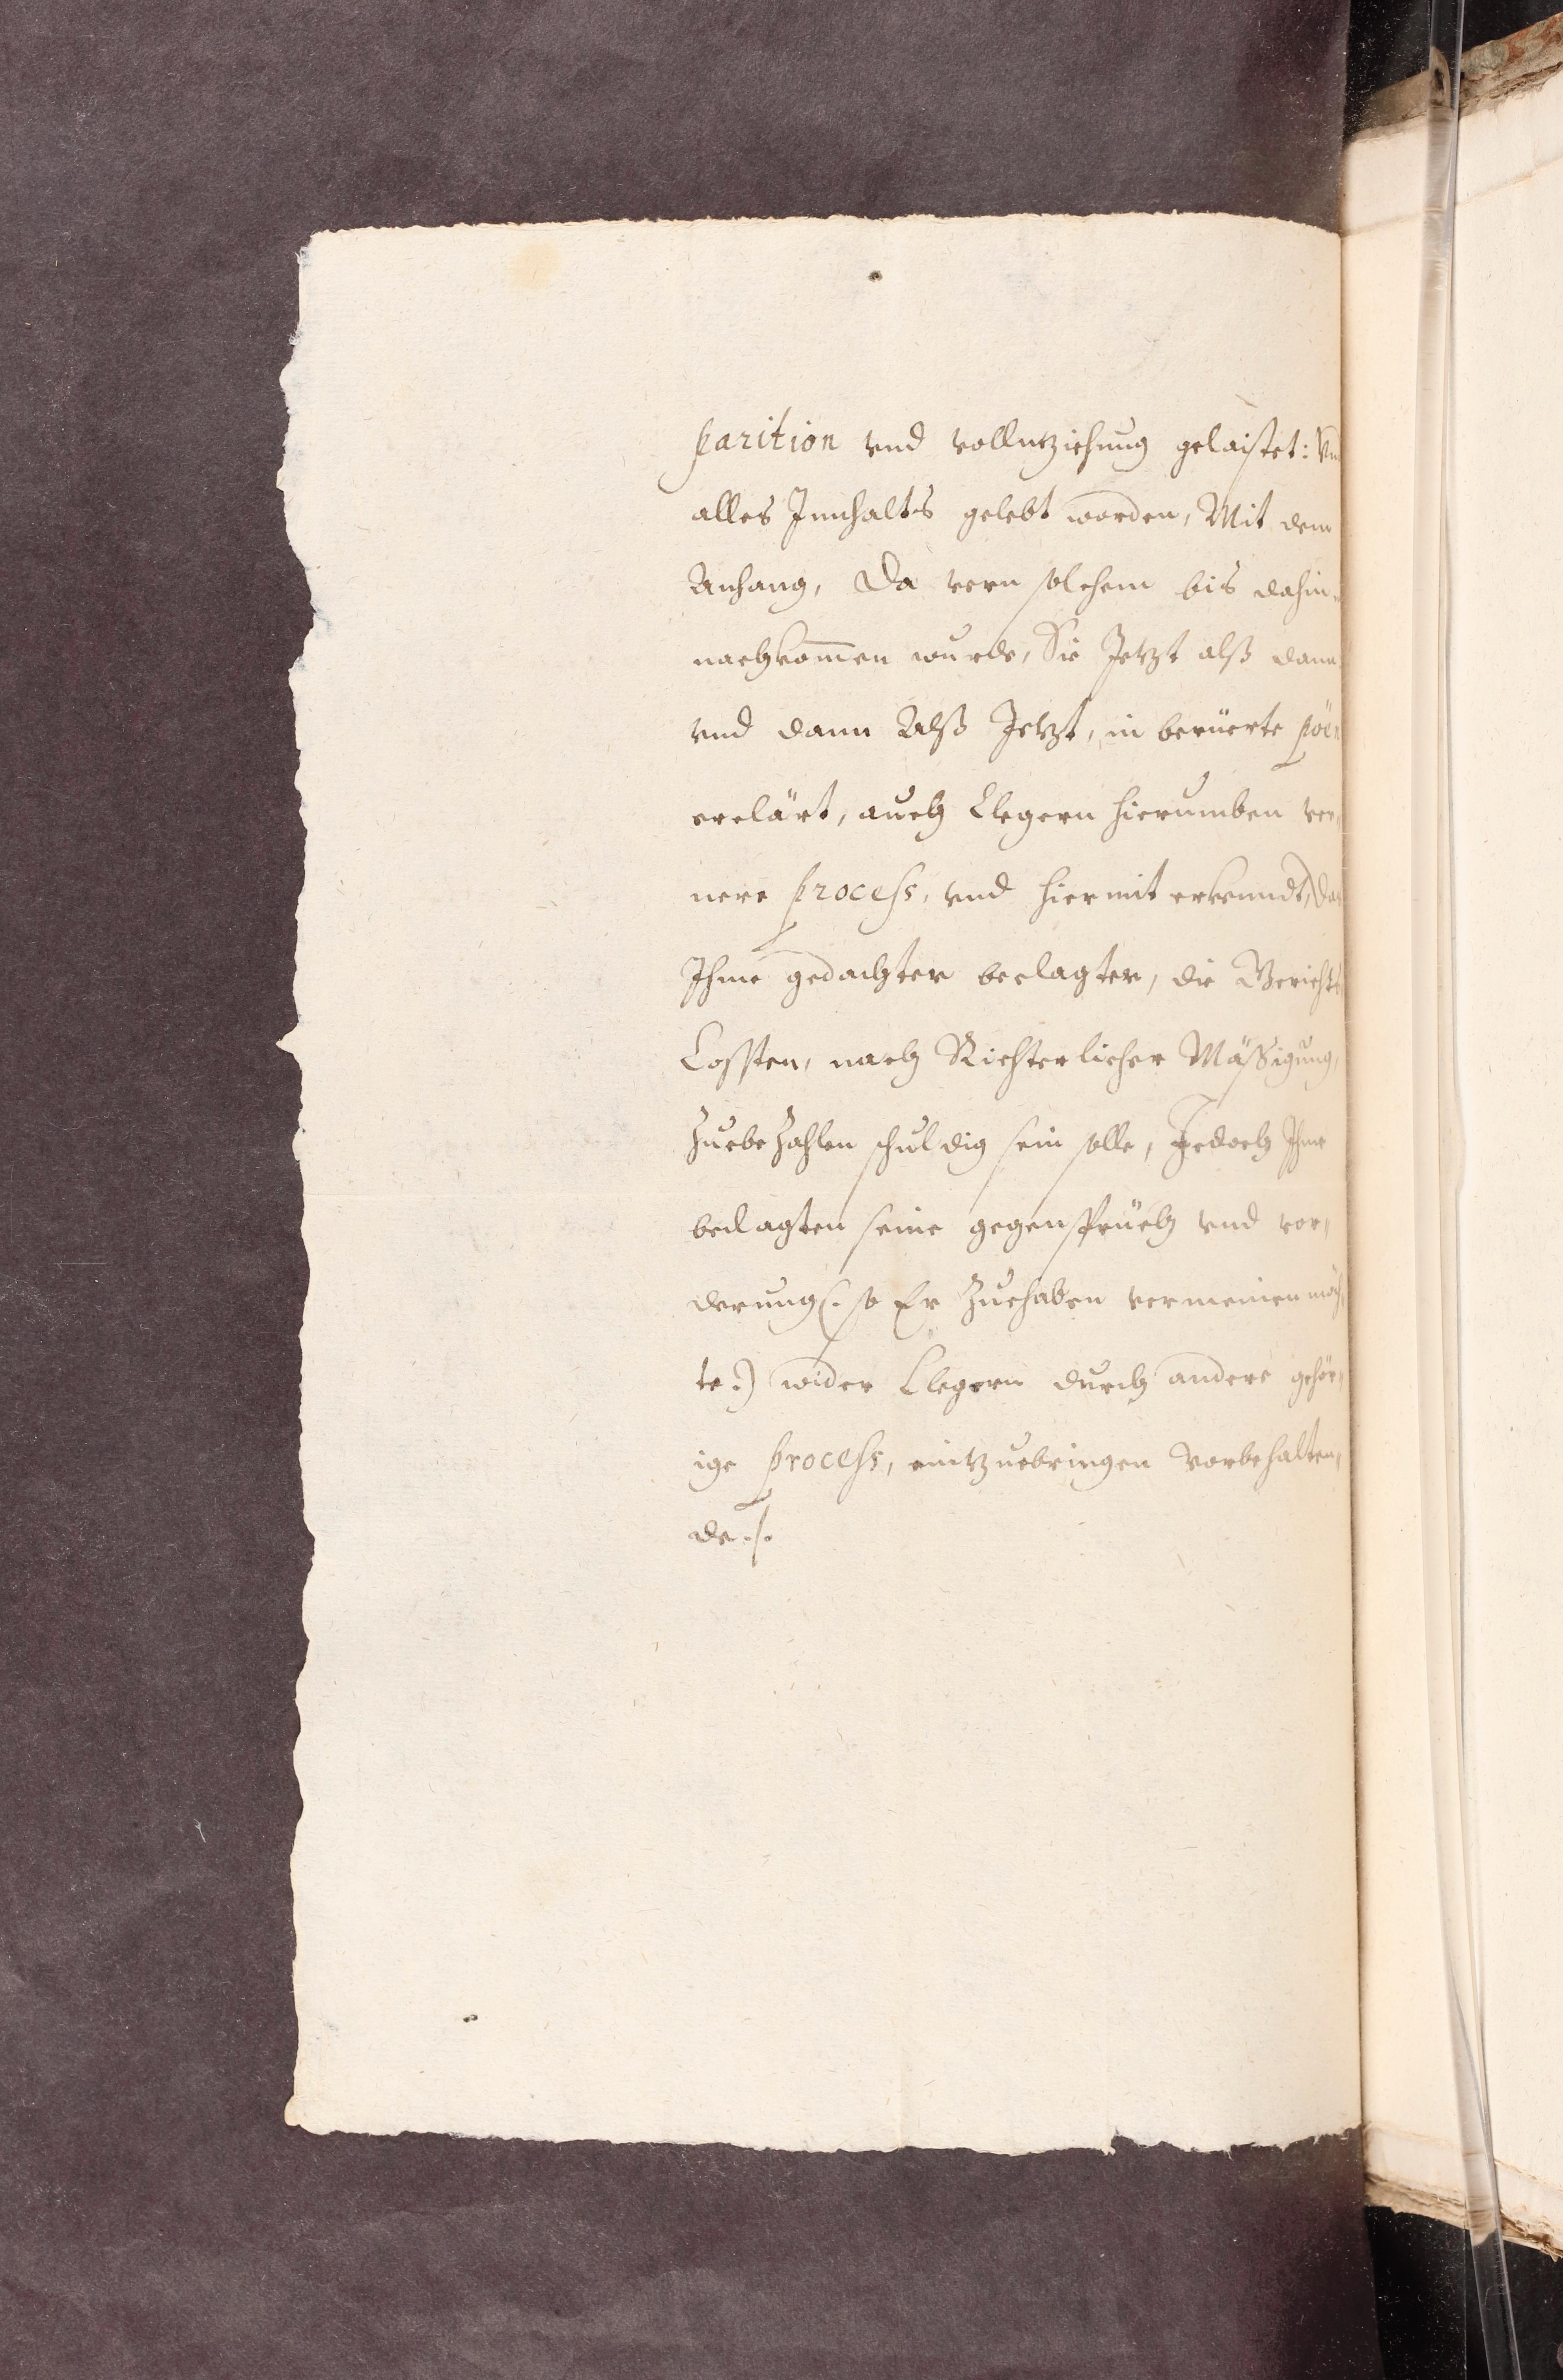 parition vnd volluntziehung gelaistet: Vnd
alles Jnnhalts gelebt worden, Mit dem
Anhang, Da vern solchem bis dahin
nachkom̄en wurde, Sie Jetzt alß dann
vnd dann Alß Jetzt, in berüerte pöen
erclärt, auch Clegern hierumben ver„
nere process, vnd hiermit erkenndt, Das
Jhme gedachter beclagter, die Gerichts
Cossten, nach Richterlicher Mässigung,
Zuebezahlen schuldig sein solle, Jedoch Jhme
beclagten seine gegensprüch vnd vor„
derung (: so Er Zuehaben vermeinen möch„
te :) wider Clegern durch andere gehör„
ige process, eintzuebringen Vorbehalten„
de ./.